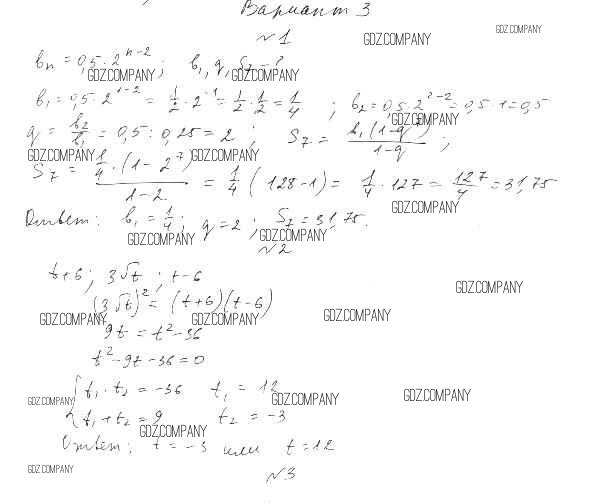 Вариант 3
№1
GDZ.COMPANY GDZ.COMPANY
bn = 0,5 · 2^(n-2); b1, q, S7 - ?
GDZ.COMPANY GDZ.COMPANY
b1 = 0,5 · 2^(1-2) = 1/2 · 2^(-1) = 1/2 · 1/2 = 1/4 ; b2 = 0,5 · 2^(2-2) = 0,5 · 1 = 0,5
GDZ.COMPANY
q = b2/b1 = 0,5 : 0,25 = 2 ; S7 = b1(1-q^7)/(1-q) ;
GDZ.COMPANY GDZ.COMPANY
S7 = 1/4 · (1-2^7)/(1-2) = 1/4 (128-1) = 1/4 · 127 = 127/4 = 31,75
GDZ.COMPANY
Ответ: b1 = 1/4; q = 2; S7 = 31,75.
GDZ.COMPANY GDZ.COMPANY
№2
t+6; 3√t; t-6
GDZ.COMPANY
(3√t)^2 = (t+6)(t-6)
GDZ.COMPANY GDZ.COMPANY GDZ.COMPANY
9t = t^2-36
t^2-9t-36=0
{ t1 · t2 = -36 t1 = 12
GDZ.COMPANY GDZ.COMPANY GDZ.COMPANY
{ t1 + t2 = 9 t2 = -3
GDZ.COMPANY
Ответ: t = -3 или t = 12
GDZ.COMPANY
№3